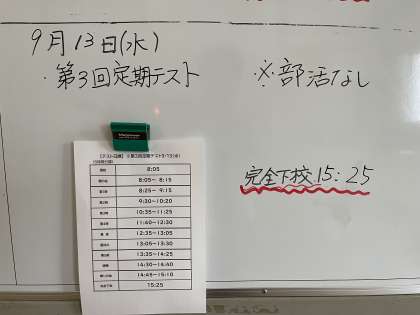 9月13日(水)
・第3回定期テスト
※部活なし
完全下校 15:25
8:05
8:05～ 8:15
8:25～ 9:15
9:30～10:20
10:35～11:25
11:40～12:30
12:35～13:05
13:05～13:30
13:35～14:25
14:30～14:40
14:45～15:10
15:25